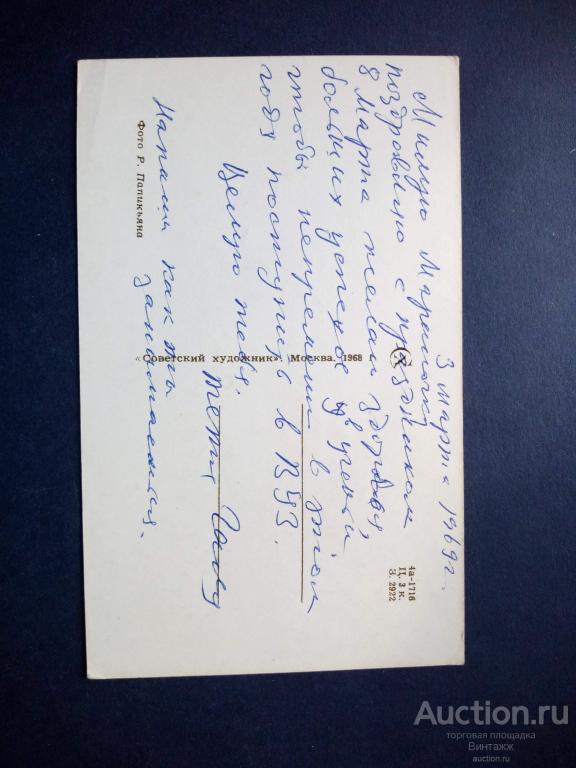 3 марта 1969 г.
Милую Мариночку
поздравляю с праздником
8 Марта желаю здоровья,
больших успехов в учёбы
чтобы непременно в этом
году поступить в ВУЗ.
Целую тебя.
тетя Галя
Напиши как ты
занимаешься.
«Советский художник». Москва. 1968
Фото Р. Папикьяна
4а-1716
Ц. 3 к.
З. 2922
Auction.ru
торговая площадка
Винтажж
auction.ru